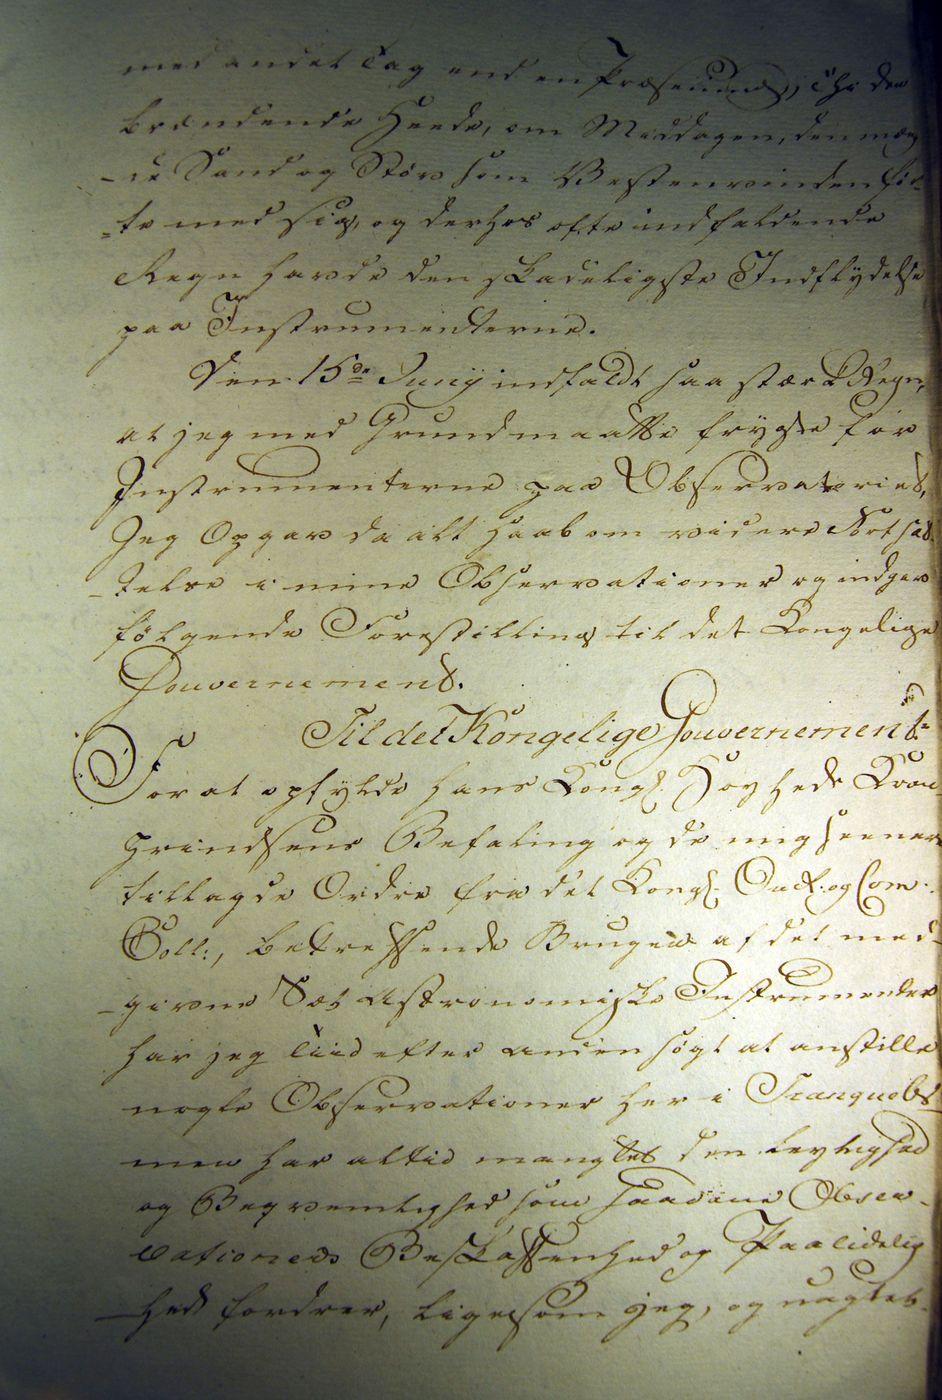 med andet Tag end en Præsenning, thi den
brændende Heede, om Middagen, den mæng
-de Sand og Støv som Vestenvinden før-
-te med sig, og derhos ofte indfaldende
Regn havde den skadeligste Indflydelse
paa Instrumenterne.
Den 15de Junij indfaldt saa stærk Regn,
at jeg med Grund maatte frygte for
Instrumenterne paa Observatoriet,
Jeg Opgav da alt Haab om videre Fortsæt
-telse i mine Observationer og indgav
følgende Forestilling til det Kongelige
Gouvernement.
Til det Kongelige Gouvernement
For at opfylde hans Kongl. Høyheds Kron-
prindsens Befaling og de mig seener
tillagde Ordre fra det Kongl. Oec. og Com:
Coll:, betreffende Brugen af det med-
-givne Sæt Astronomiske Instrumenter
har jeg Tiid efter anden søgt at anstille
nogle Observationer her i Tranquebar
men har altid manglet den Leylighed
og Beqvemlighed som saadanne Obser-
vationers Beskaffenhed og Paalidelig
-hed fordrer, ligesom jeg, og uagtet